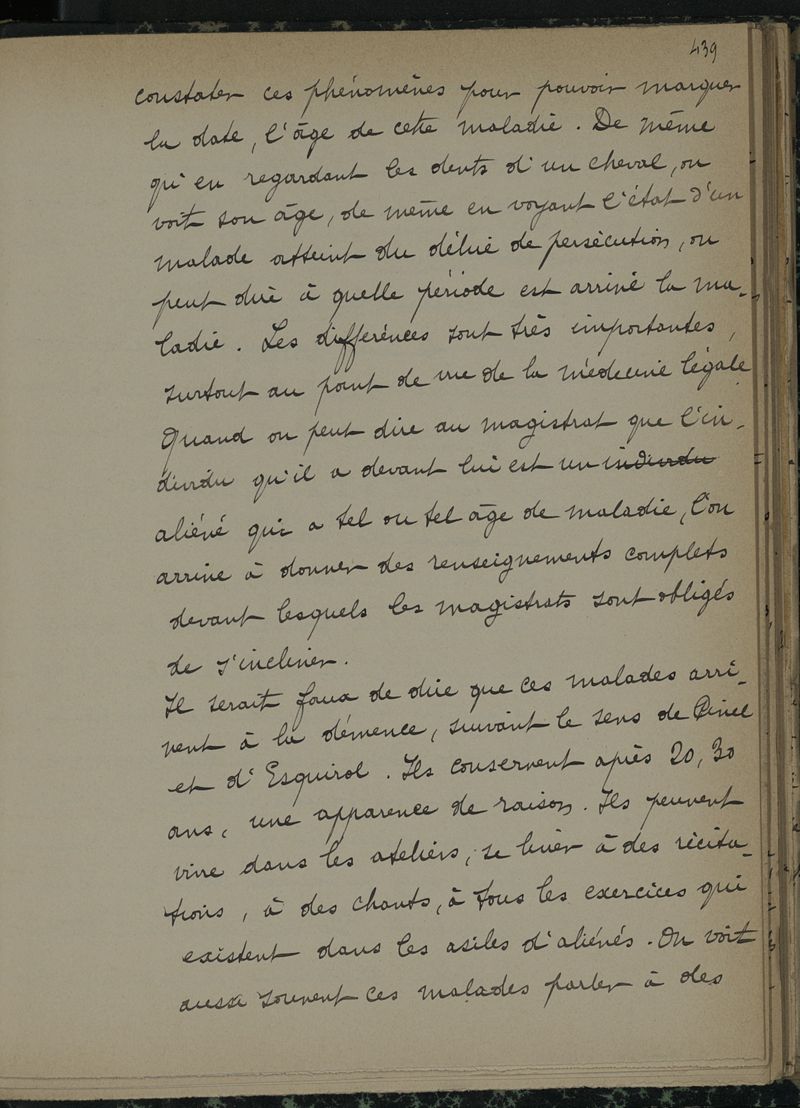 439
constater ces phénomènes pour pouvoir marquer
la date, l'âge de cette maladie. De même
qu'en regardant les dents d'un cheval, on
voit son âge, de même en voyant l'état d'un
malade atteint du délire de persécution, on
peut dire à quelle période est arrivé la ma-
ladie. Les différences sont très importantes,
surtout au point de vue de la médecine légale.
Quand on peut dire au magistrat que l'in-
dividu qu'il a devant lui est un individu
aliéné qui a tel ou tel âge de maladie, l'on
arrive à donner des renseignements complets
devant lesquels les magistrats sont obligés
de s'incliner.
Il serait faux de dire que ces malades arri-
vent à la démence, suivant le sens de Pinel
et d'Esquirol. Ils conservent après 20, 30
ans, une apparence de raison. Ils peuvent
vivre dans les ateliers, se livrer à des récita-
tions, à des chants, à tous les exercices qui
existent dans les asiles d'aliénés. On voit
aussi souvent ces malades parler à des